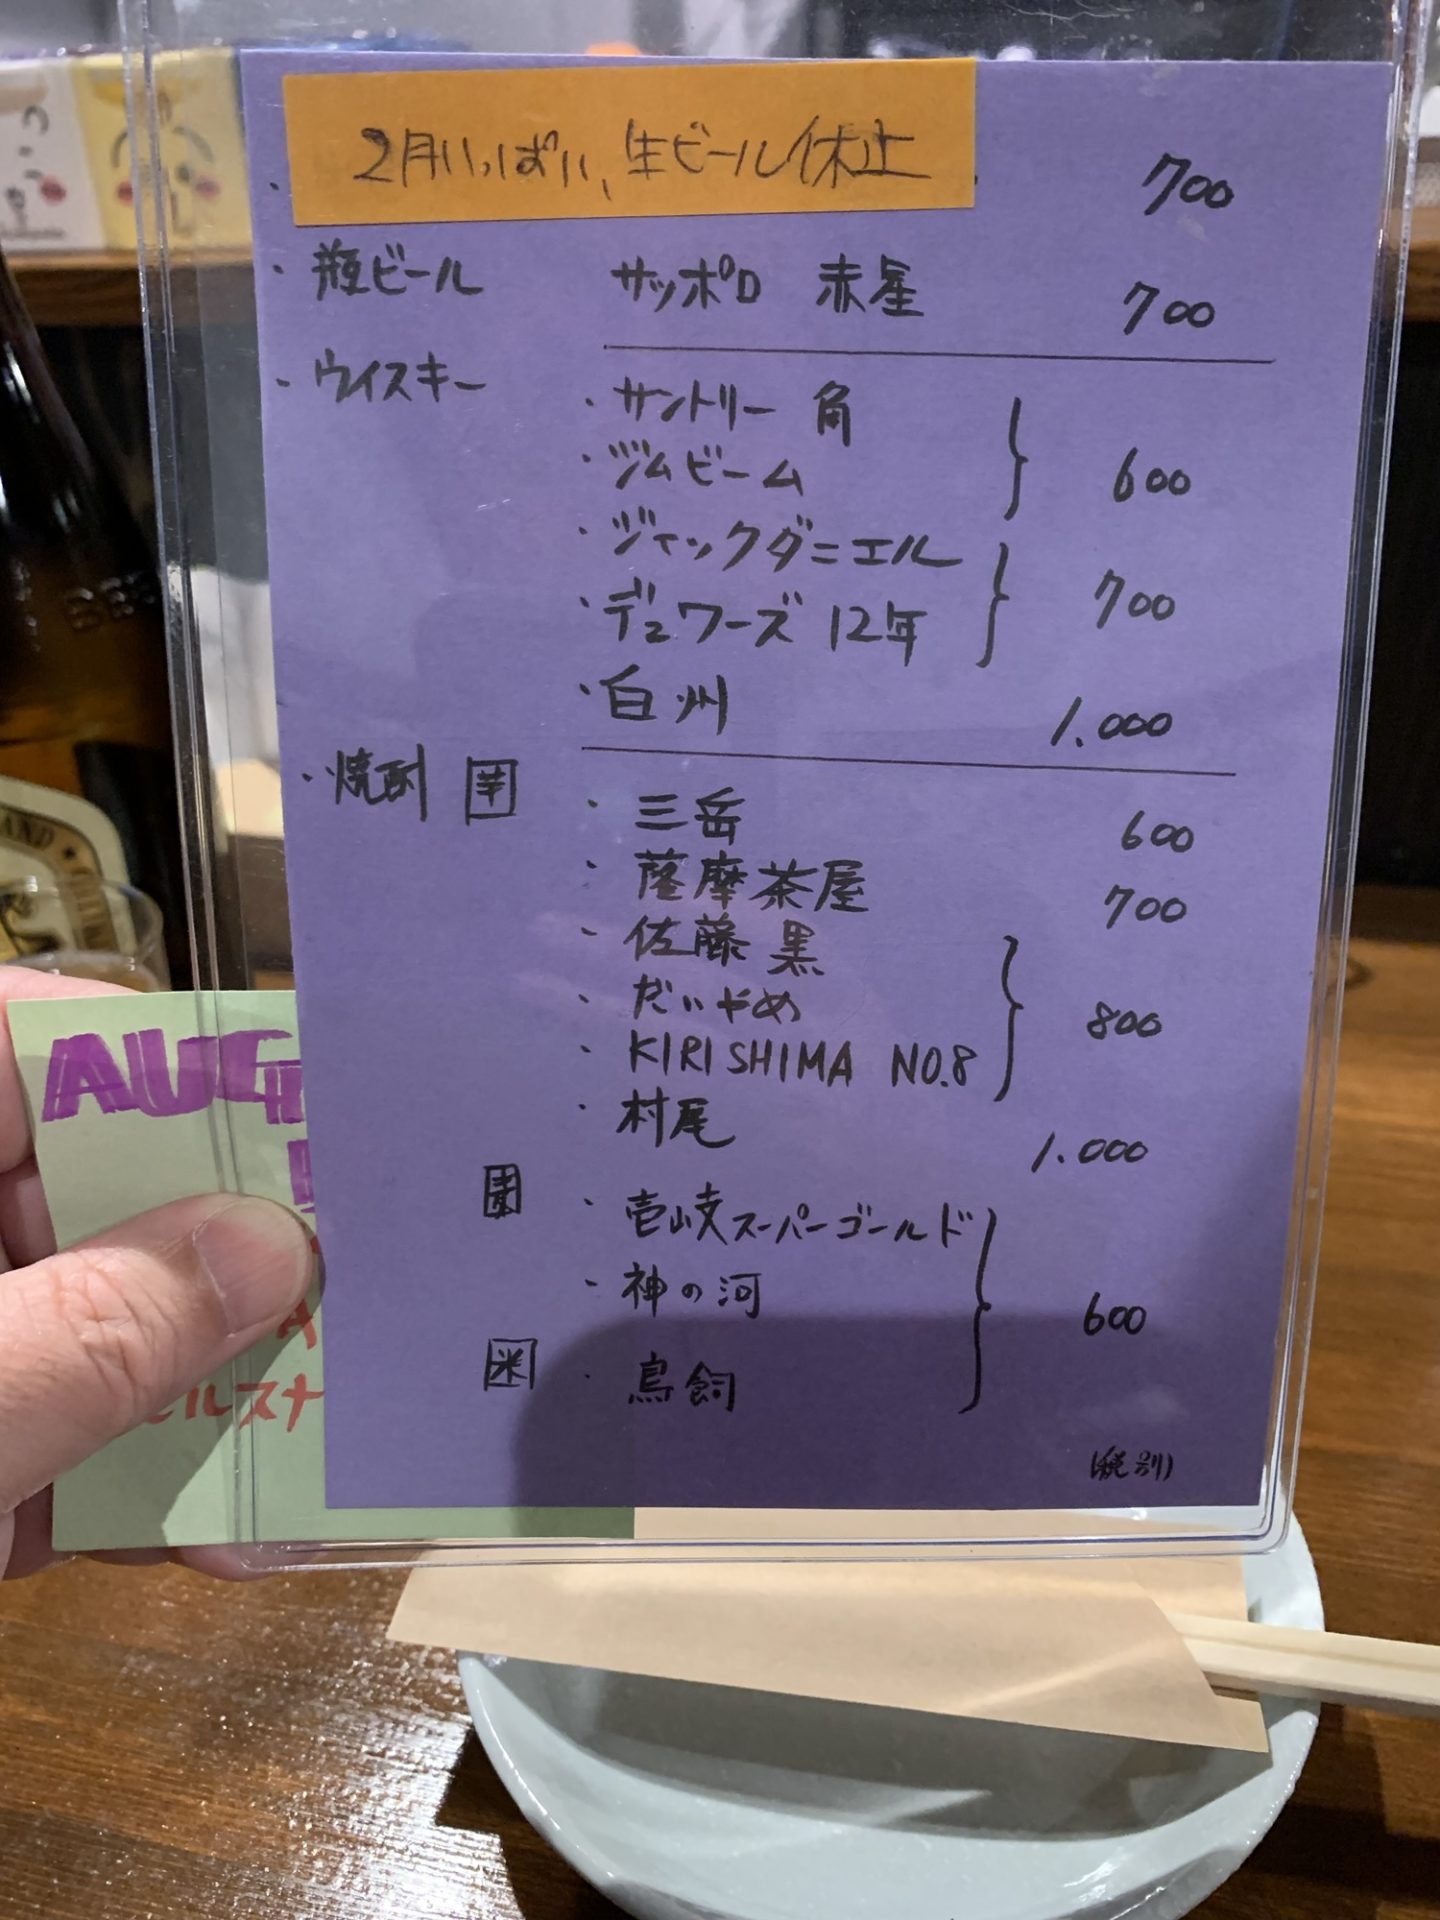 2月いっぱい、生ビール休止 700
・瓶ビール サッポロ 赤星 700
・ウイスキー ・サントリー 角
・ジムビーム 600
・ジャックダニエル
・デュワーズ 12年 700
・白州 1.000
・焼酎 芋 ・三岳 600
・薩摩茶屋 700
・佐藤 黒
・だいやめ 800
・KIRISHIMA NO.8
・村尾 1.000
麦 ・壱岐スーパーゴールド
・神の河 600
米 ・鳥飼
(税別)
AUG
ルスナ